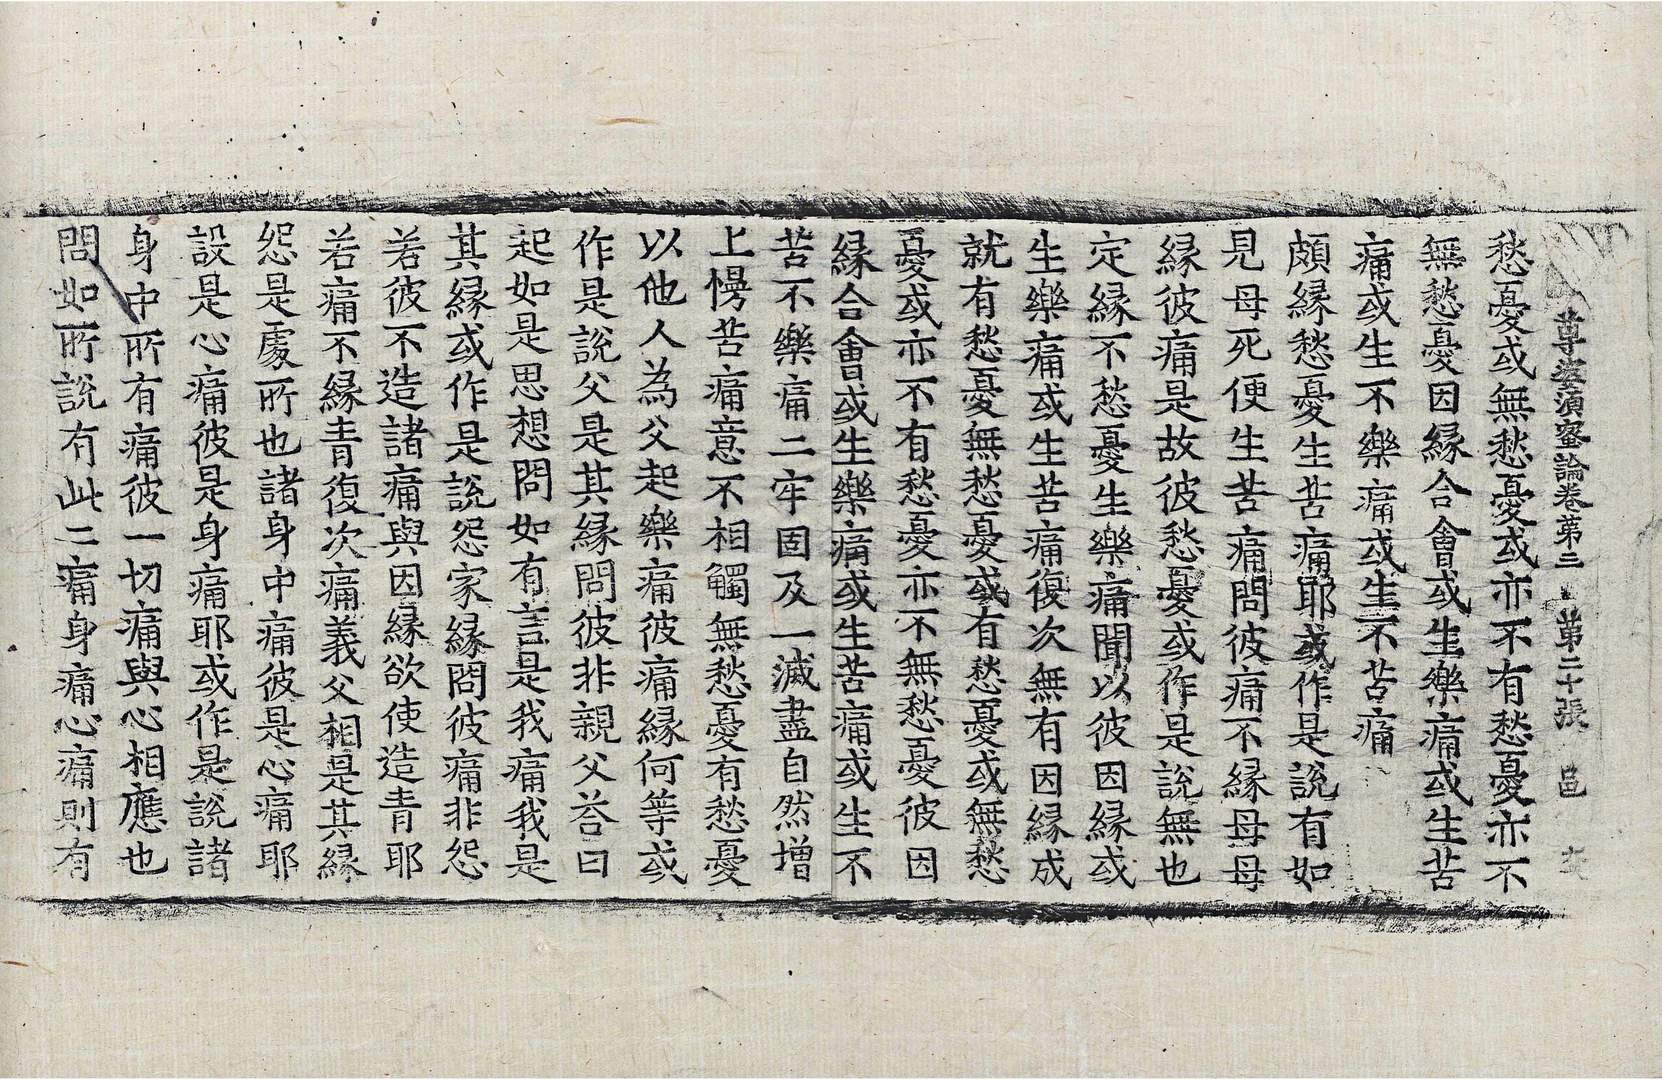 尊婆須蜜論卷第三 第二十張 邑
愁憂或無愁憂或亦不有愁憂亦不
無愁憂因縁合會或生樂痛或生苦
痛或生不樂痛或生不苦痛
頗縁愁憂生苦痛耶或作是說有如
見母死便生苦痛問彼痛不縁母母
縁彼痛是故彼愁憂或作是說無也
定縁不愁憂生樂痛聞以彼因縁或
生樂痛或生苦痛復次無有因縁成
就有愁憂無愁憂或有愁憂或無愁
憂或亦不有愁憂亦不無愁憂彼因
縁合會或生樂痛或生苦痛或生不
苦不樂痛二牢固及一滅盡自然增
上慢苦痛意不相觸無愁憂有愁憂
以他人為父起樂痛彼痛縁何等或
作是說父是其縁問彼非親父荅曰
起如是思想問如有言是我痛我是
其縁或作是說怨家縁問彼痛非怨
若彼不造諸痛與因縁欲使造青耶
若痛不縁青復次痛義父相是其縁
怨是處所也諸身中痛彼是心痛耶
設是心痛彼是身痛耶或作是說諸
身中所有痛彼一切痛與心相應也
問如所說有此二痛身痛心痛則有